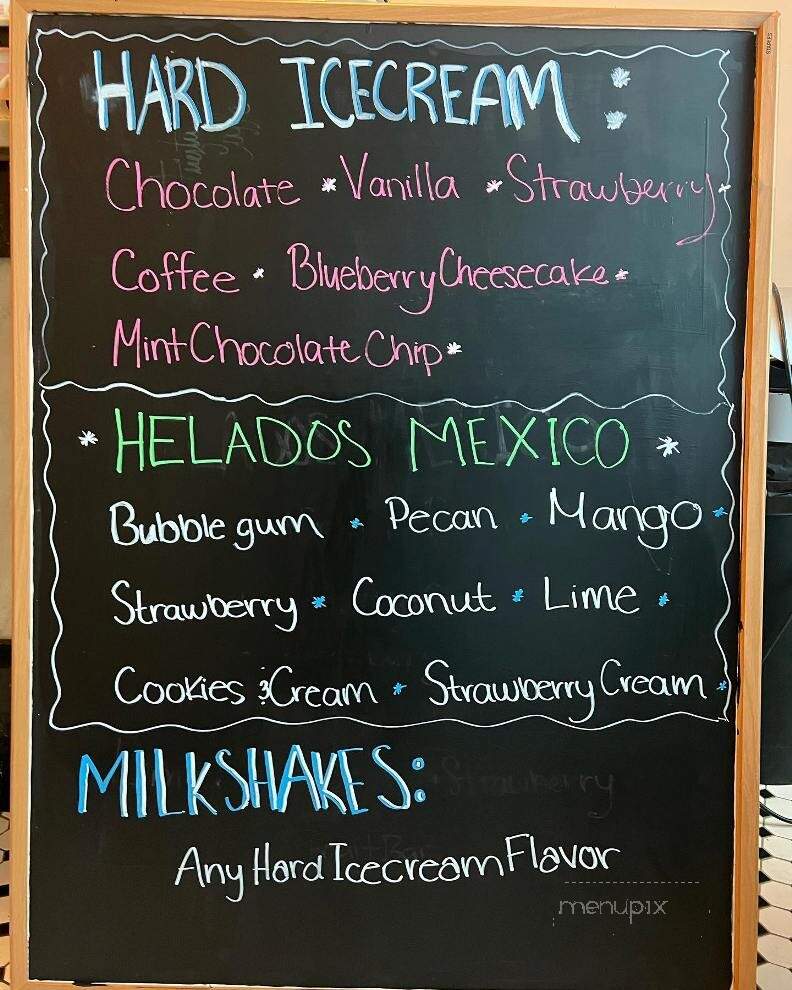 HARD ICECREAM:
Chocolate * Vanilla * Strawberry *
Coffee * Blueberry Cheesecake *
Mint Chocolate Chip *
* HELADOS MEXICO *
Bubble gum * Pecan * Mango *
Strawberry * Coconut * Lime *
Cookies & Cream * Strawberry Cream *
MILKSHAKES:
Strawberry
Any Hard Icecream Flavor
menupix
STAPLES